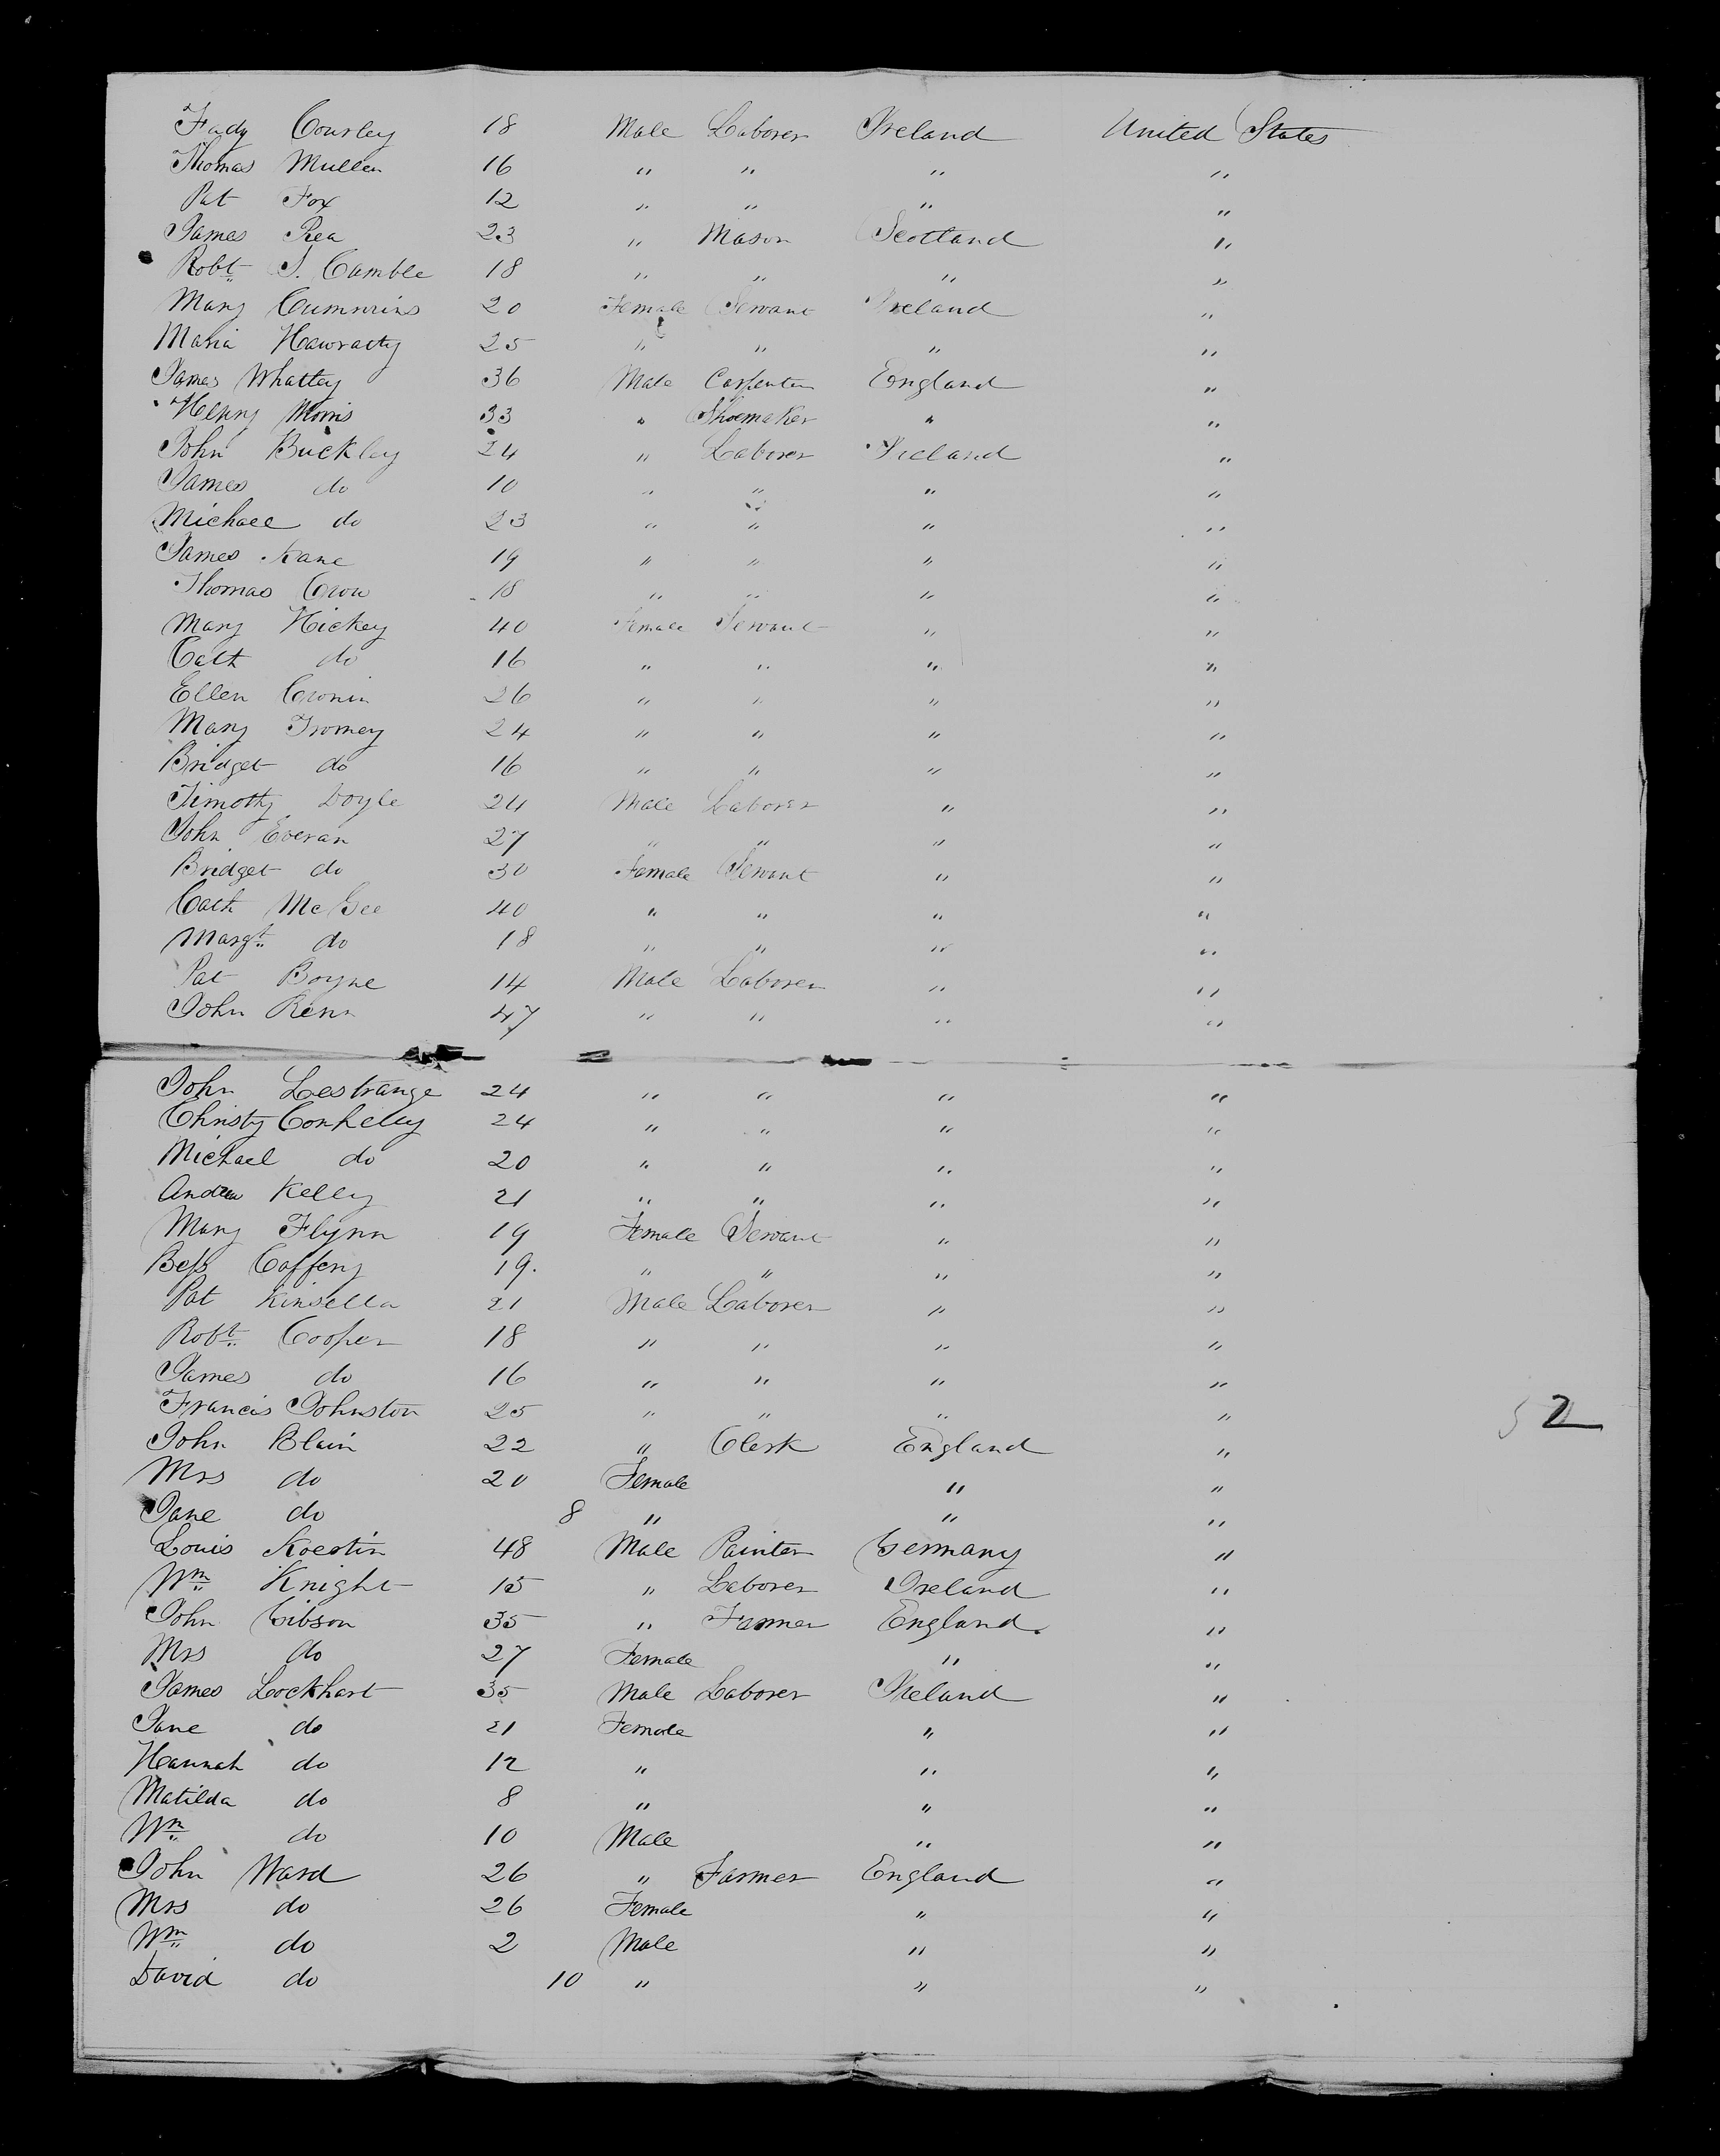 Fady Courley 18 Male Laborer Ireland United States
Thomas Mullen 16 " " " "
Pat Fox 12 " " " "
James Rea 23 " Mason Scotland "
Robt S. Camble 18 " " " "
Mary Cummins 20 Female Servant Ireland "
Maria Hawraty 25 " " " "
James Whatley 36 Male Carpenter England "
Henry Morris 33 " Shoemaker " "
John Buckley 24 " Laborer Ireland "
James do 10 " " " "
Michael do 23 " " " "
James Kane 19 " " " "
Thomas Crow 18 " " " "
Mary Hickey 40 Female Servant " "
Cath do 16 " " " "
Ellen Cronin 26 " " " "
Mary Twomey 24 " " " "
Bridget do 16 " " " "
Timothy Doyle 24 Male Laborer " "
John Everan 27 " " " "
Bridget do 30 Female Servant " "
Cath McGee 40 " " " "
Margt do 18 " " " "
Pat Boyne 14 Male Laborer " "
John Renn 47 " " " "
John Lestrange 24 " " " "
Christy Conhelly 24 " " " "
Michael do 20 " " " "
Andrew Kelly 21 " " " "
Mary Flynn 19 Female Servant " "
Bess Caffeny 19. " " " "
Pat Kinsella 21 Male Laborer " "
Robt Cooper 18 " " " "
James do 16 " " " "
Francis Johnston 25 " " " "
52
John Blain 22 " Clerk England "
Mrs do 20 Female " "
Jane do 8 " " "
Louis Koestin 48 Male Painter Germany "
Wm Knight 15 " Laborer Ireland "
John Gibson 35 " Farmer England "
Mrs do 27 Female " "
James Lockhart 35 Male Laborer Ireland "
Jane do 21 Female " "
Hannah do 12 " " "
Matilda do 8 " " "
Wm do 10 Male " "
John Ward 26 " Farmer England "
Mrs do 26 Female " "
Wm do 2 Male " "
David do 10 " " "